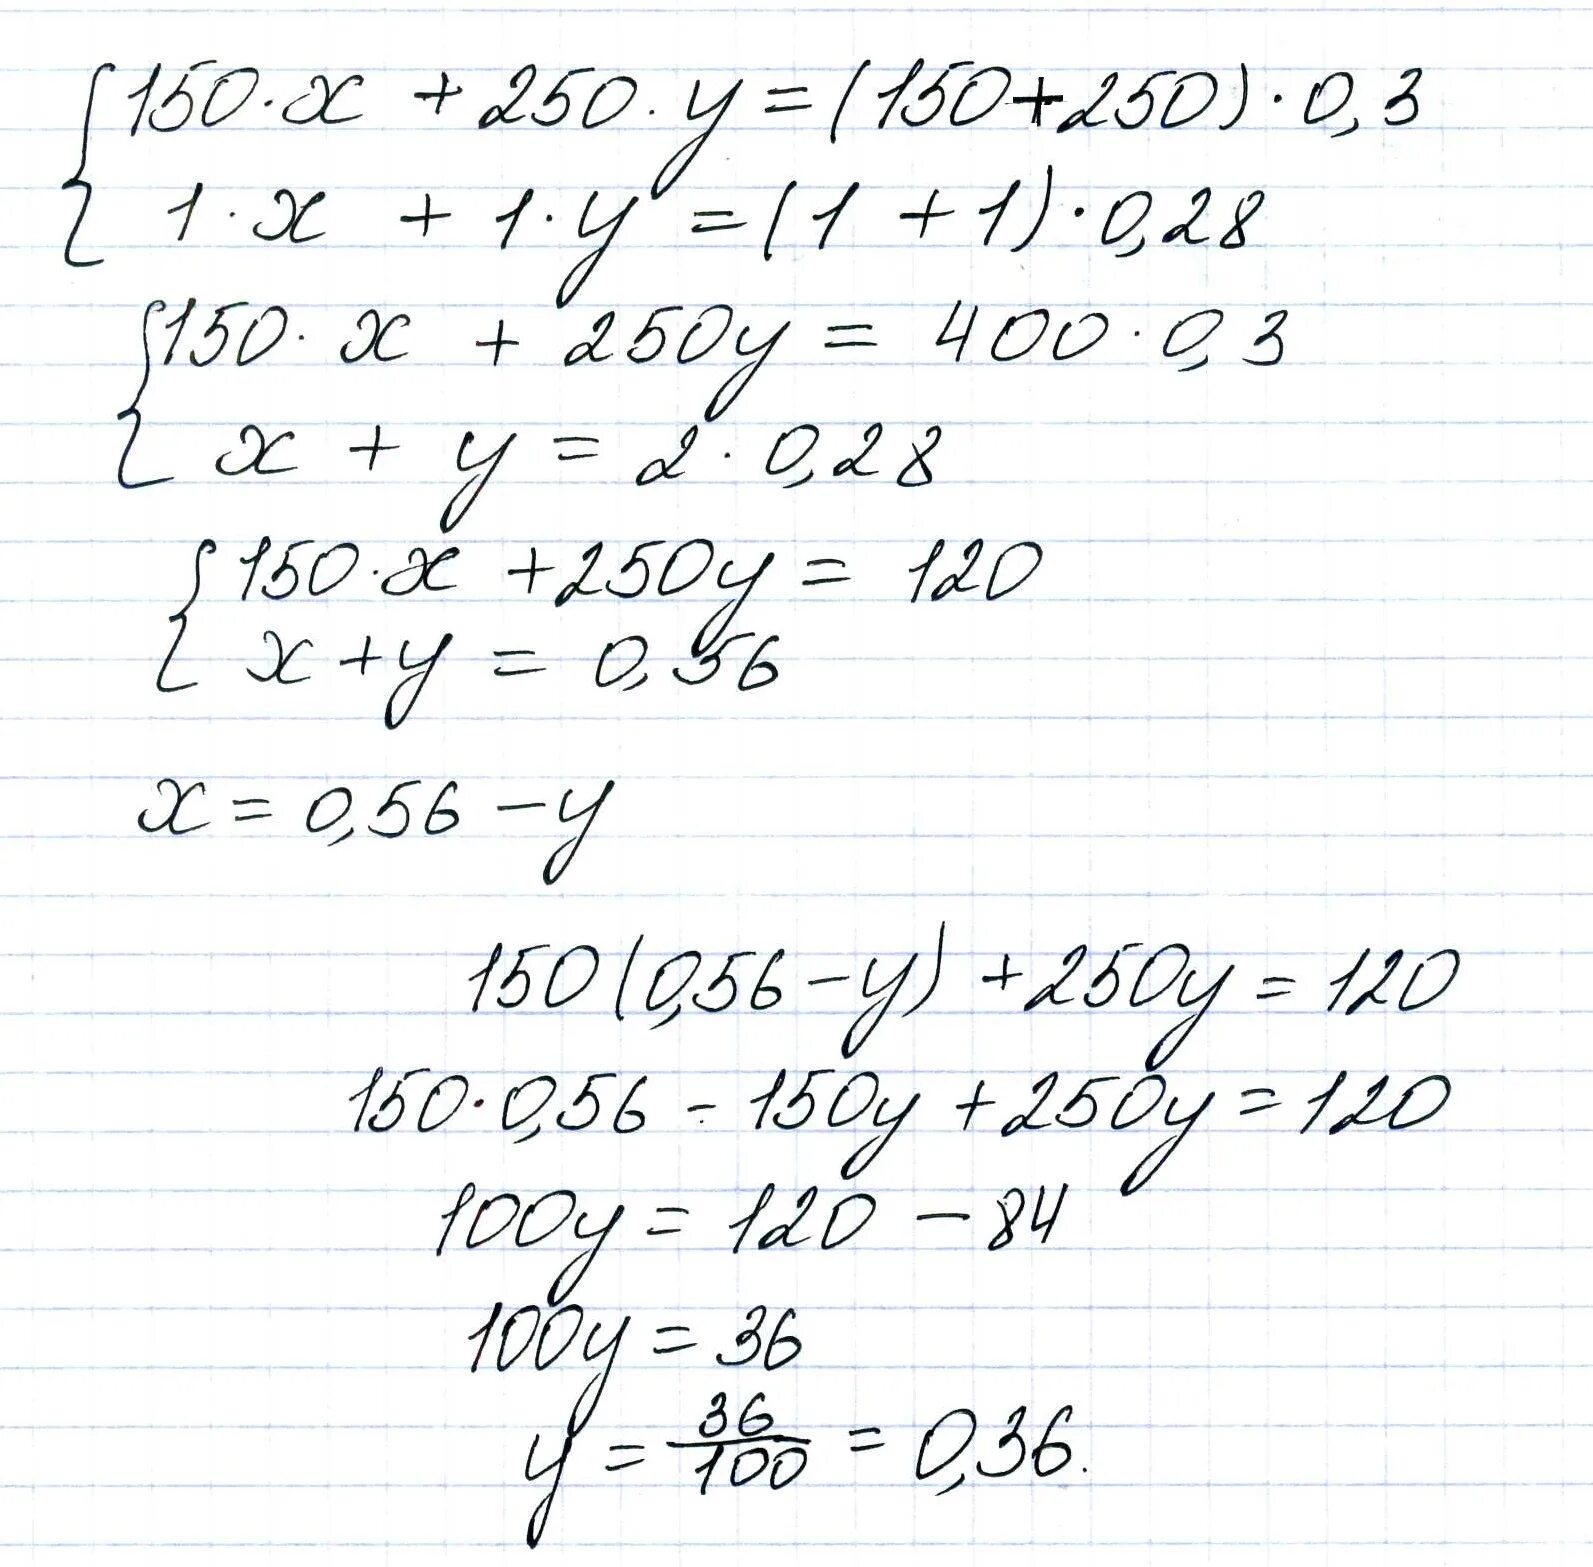 150·x + 250·y = (150+250)·0,3
1·x + 1·y = (1 + 1)·0,28
150·x + 250y = 400·0,3
x + y = 2·0,28
150·x + 250y = 120
x + y = 0,56
x = 0,56 - y
150(0,56 - y) + 250y = 120
150·0,56 - 150y + 250y = 120
100y = 120 - 84
100y = 36
y = 36/100 = 0,36.